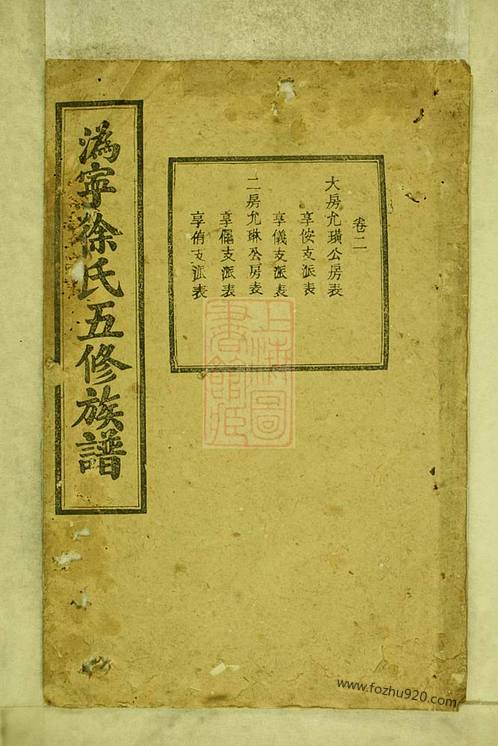 溈寧徐氏五修族譜
卷二
大房允璜公房表
享侒支派表
享儀支派表
二房允琳公房表
享儒支派表
享侑支派表
上海圖
書館藏
www.fozhu920.com